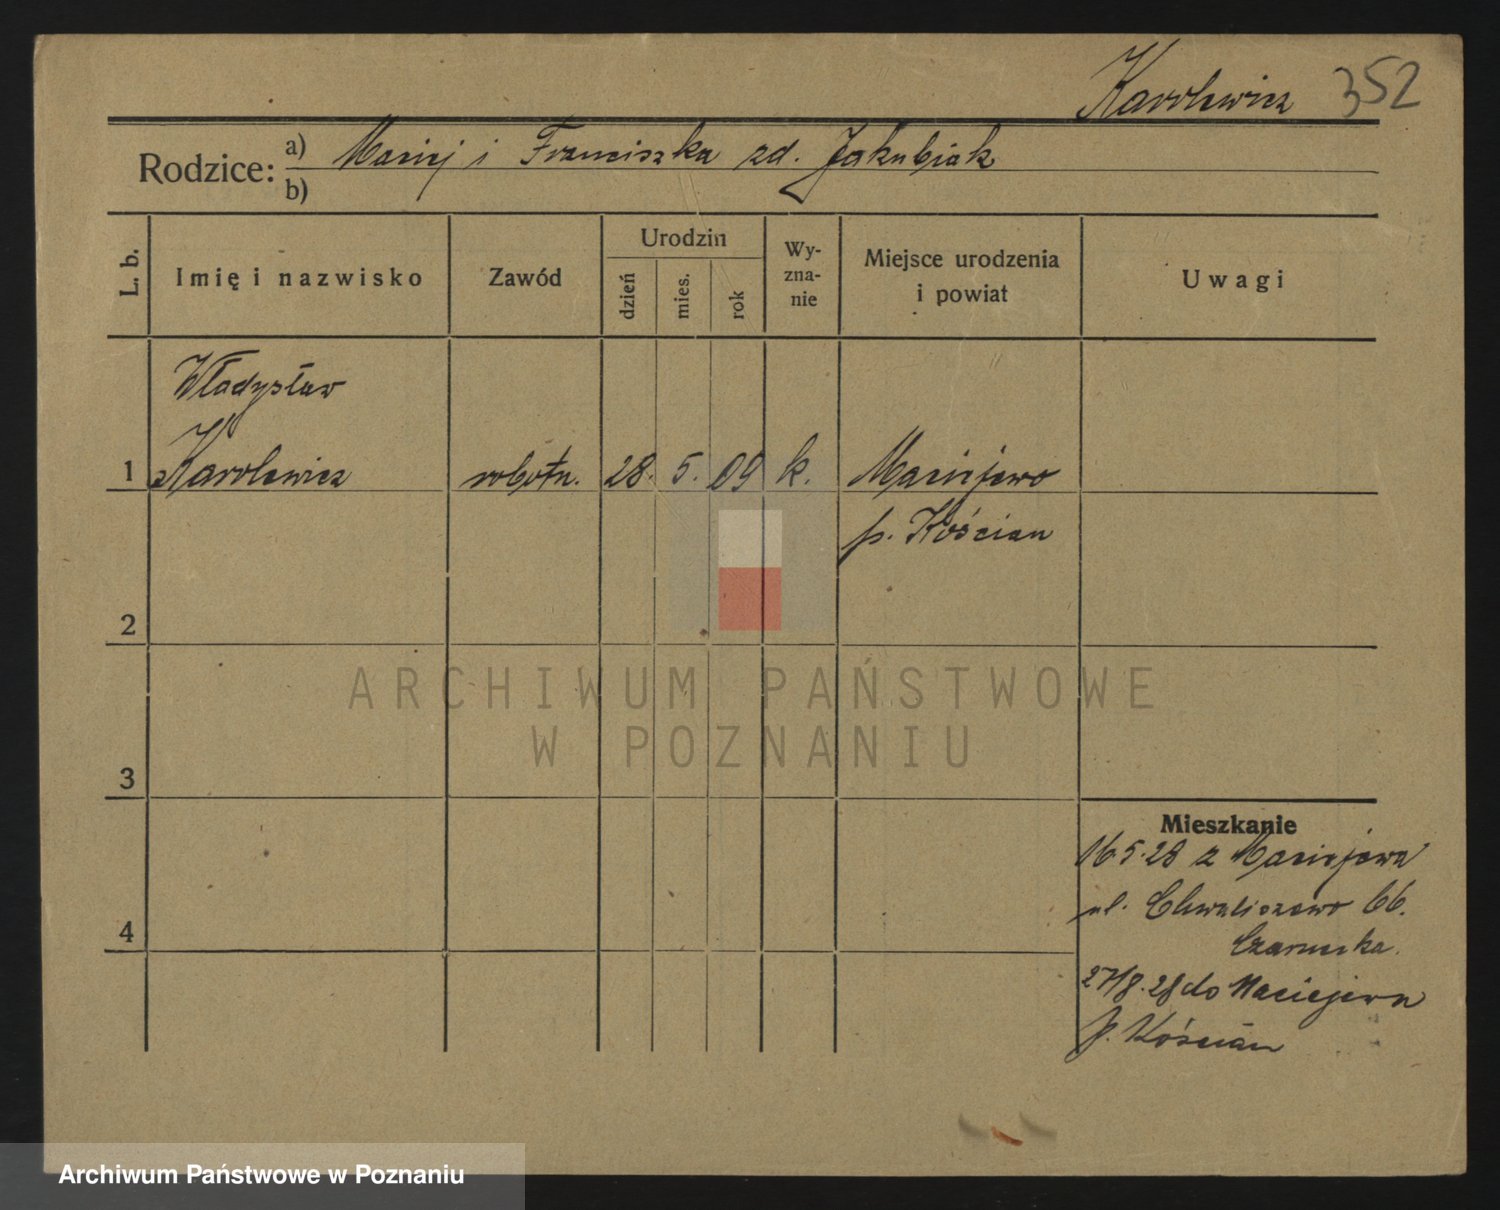 Karolewicz 352
Rodzice: a) Maciej i Franciszka zd. Jakubiak
b)
L. b. Imię i nazwisko Zawód Urodzin dzień mies. rok Wy-zna-nie Miejsce urodzenia i powiat Uwagi
Władysław
1 Karolewicz robotn. 28. 5. 09 k. Maciejewo
p. Kościan
2
ARCHIWUM PAŃSTWOWE
W POZNANIU
3
Mieszkanie
16.5.28 z Maciejewa
ul. Chwaliszewo 66.
4
27/8.28 do Maciejewa
p. Kościan
Archiwum Państwowe w Poznaniu